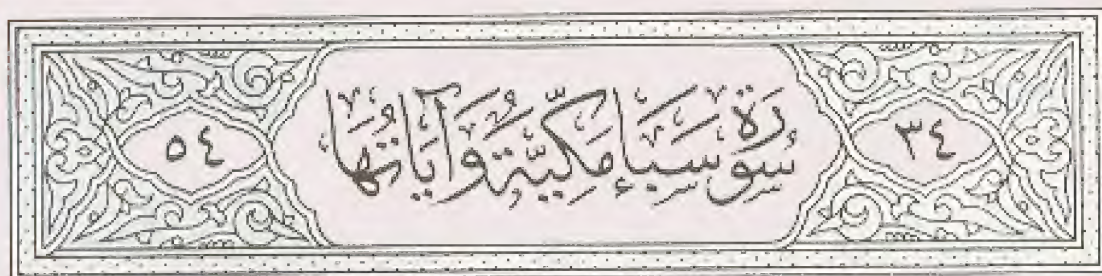 ٣٤ سُورَةُ سَبَإٍ مَكِّيَّةٌ وَآيَاتُهَا ٥٤